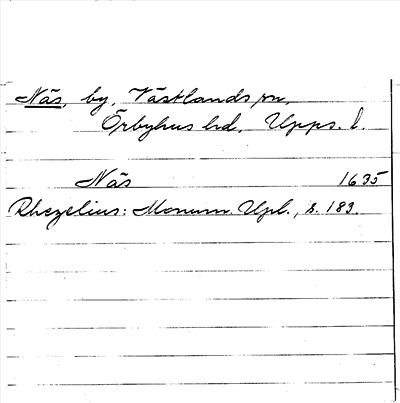 Näs, by, Västlands sn,
Örbyhus hd, Upps. l.
Näs 1635
Rhezelius: Monum. Upl., s. 183.